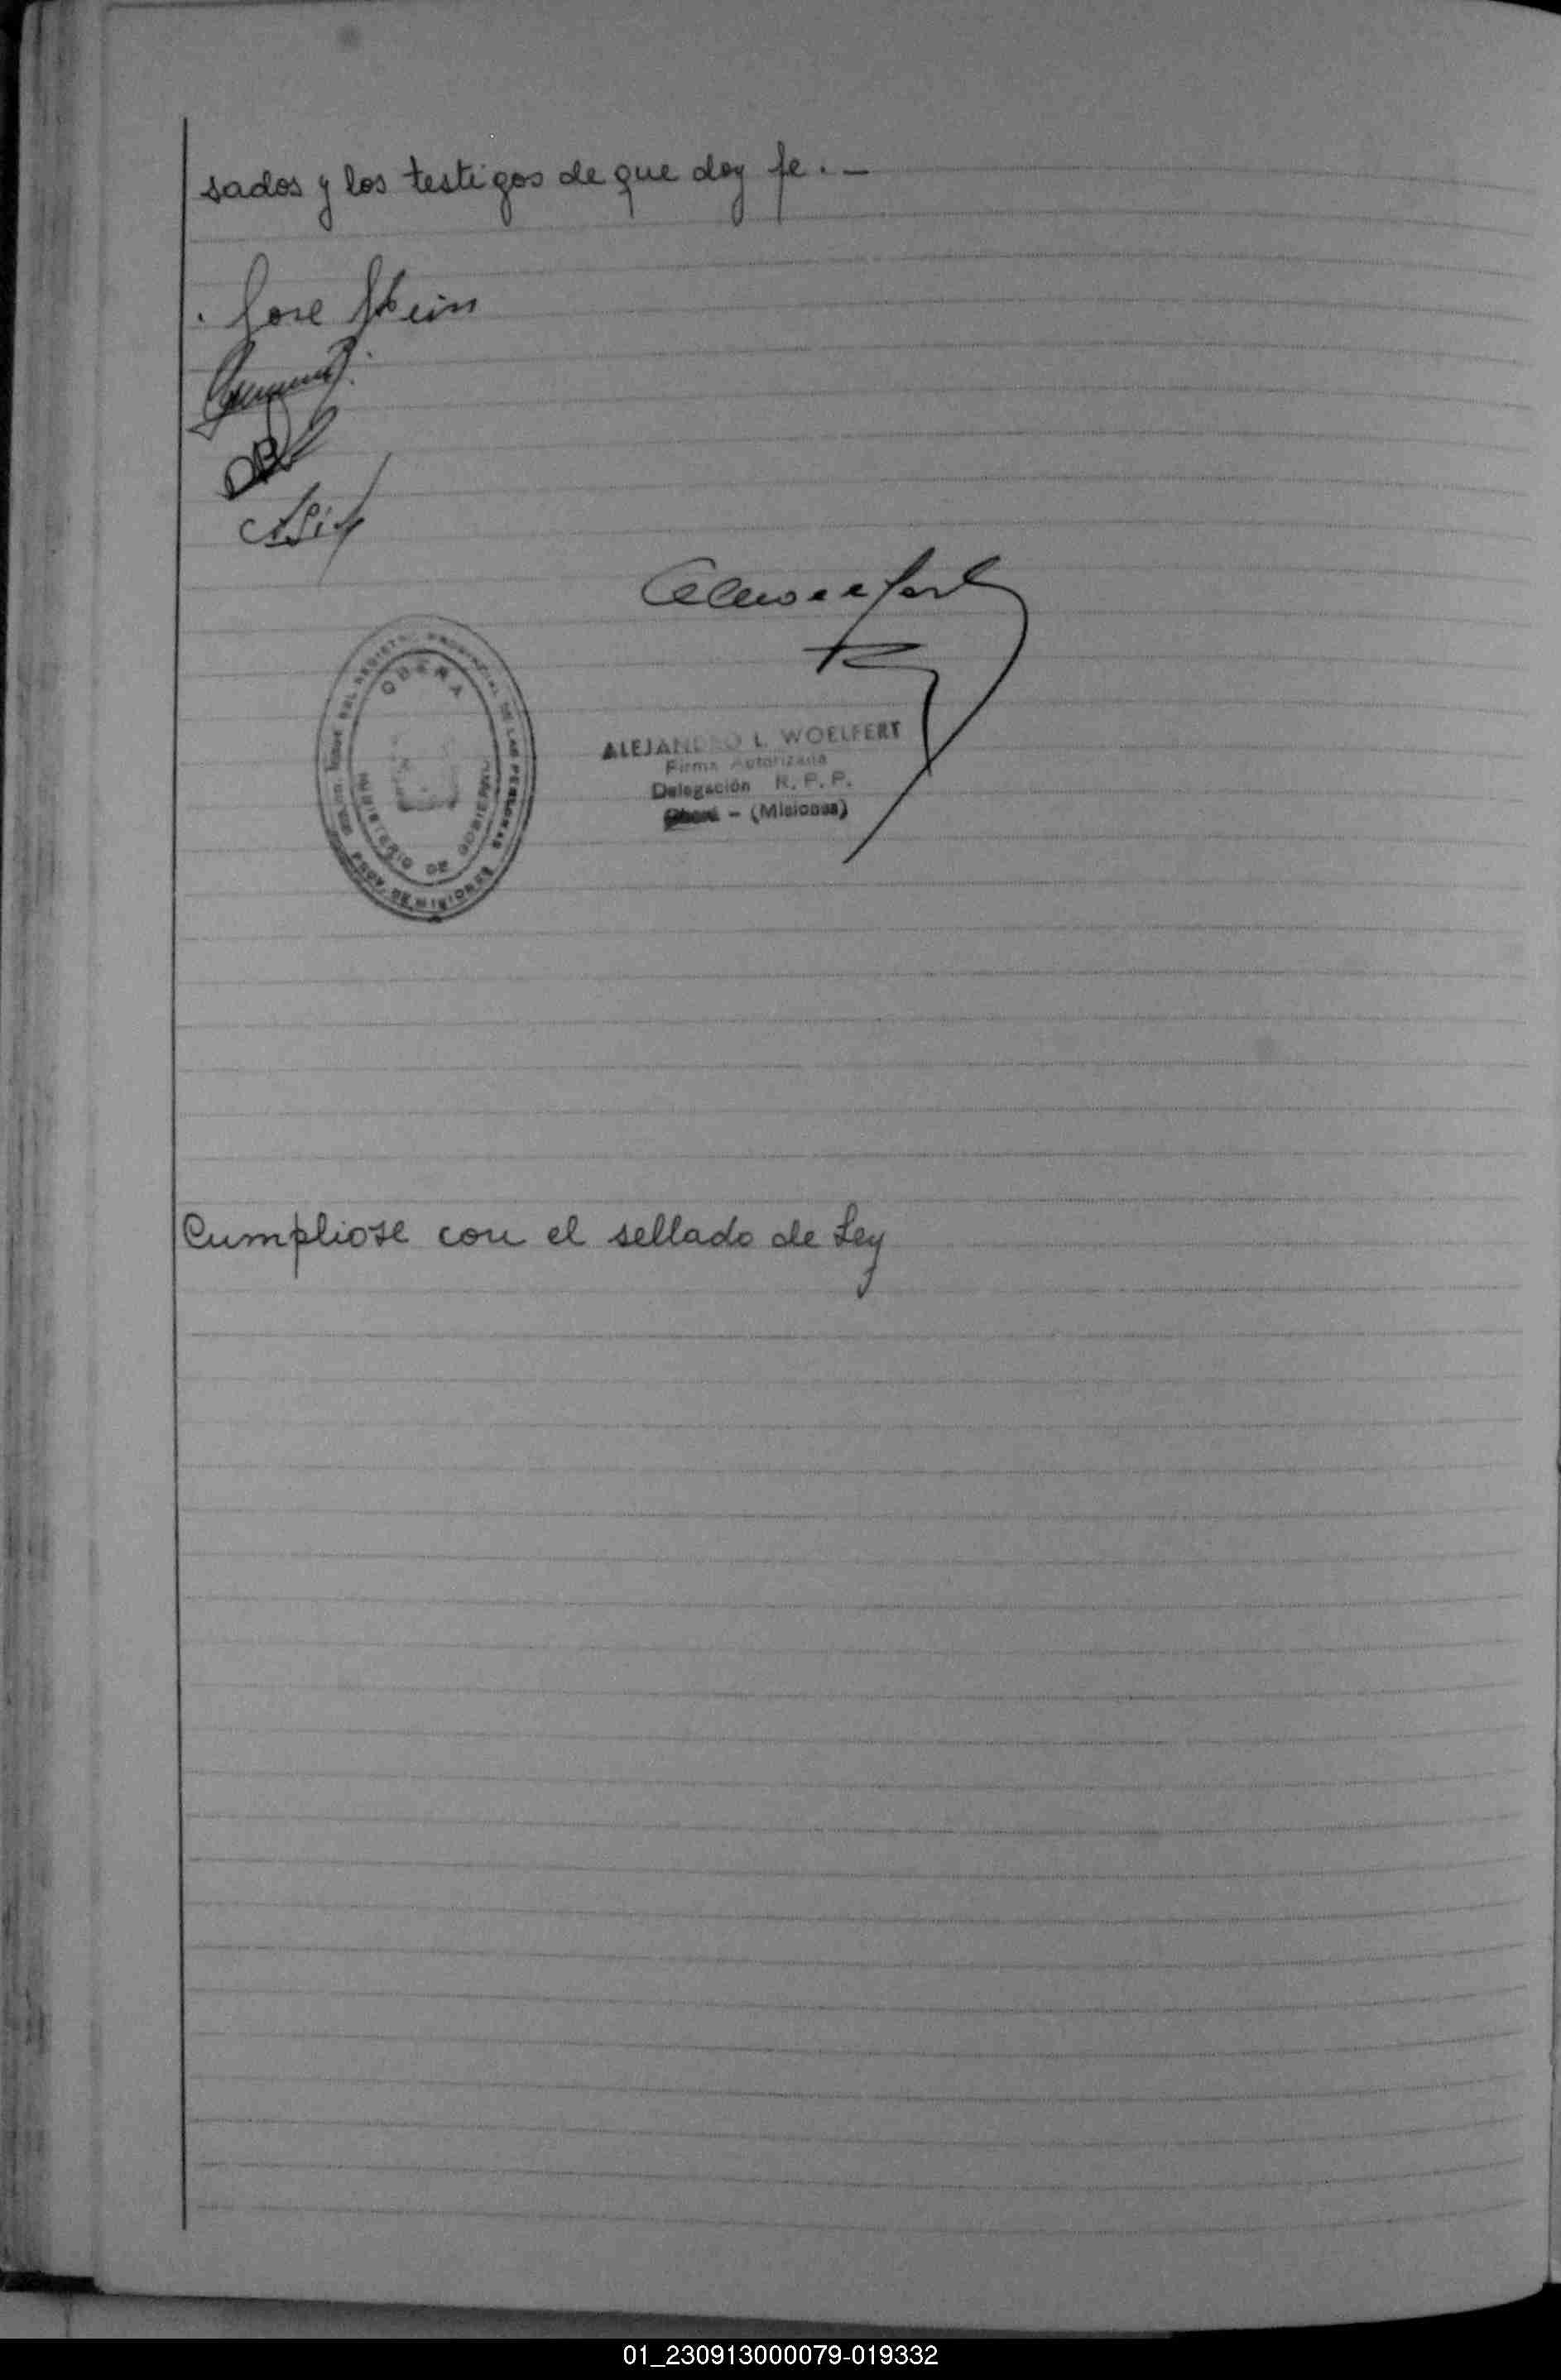 sados y los testigos de que doy fe. —
. Jose Stein
OBERA
REGISTRO PROVINCIAL DE LAS PERSONAS
MINISTERIO DE GOBIERNO
PROV. DE MISIONES
ALEJANDRO L. WOELFERT
Firma Autorizada
Delegación R. P. P.
Oberá - (Misiones)
Cumpliose con el sellado de Ley
01_230913000079-019332